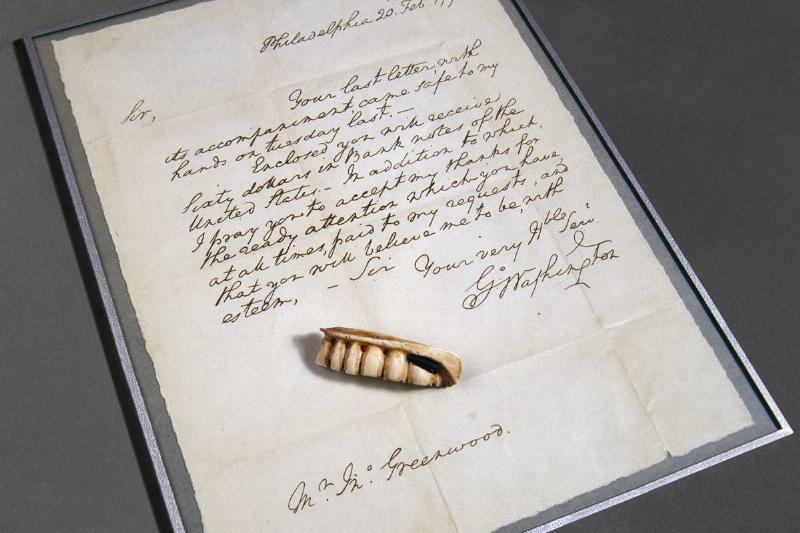 Philadelphia 20. Feb.
Sir,
Your last letter, with
its accompaniment, came safe to my
hands on tuesday last.—
Enclosed you will receive
sixty dollars in Bank notes of the
United States.— In addition to which,
I pray you to accept my thanks for
the ready attention which you have,
at all times, paid to my requests, and
that you will believe me to be, with
esteem, — Sir Your very Hble Servt.
Go Washington
Mr. Jno. Greenwood.